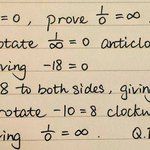 =0, prove 1/0 = ∞
otate 1/∞ = 0 anticlo
ving -18 = 0
8 to both sides, giving
rotate -10 = 8 clockw
ving 1/0 = ∞. Q.